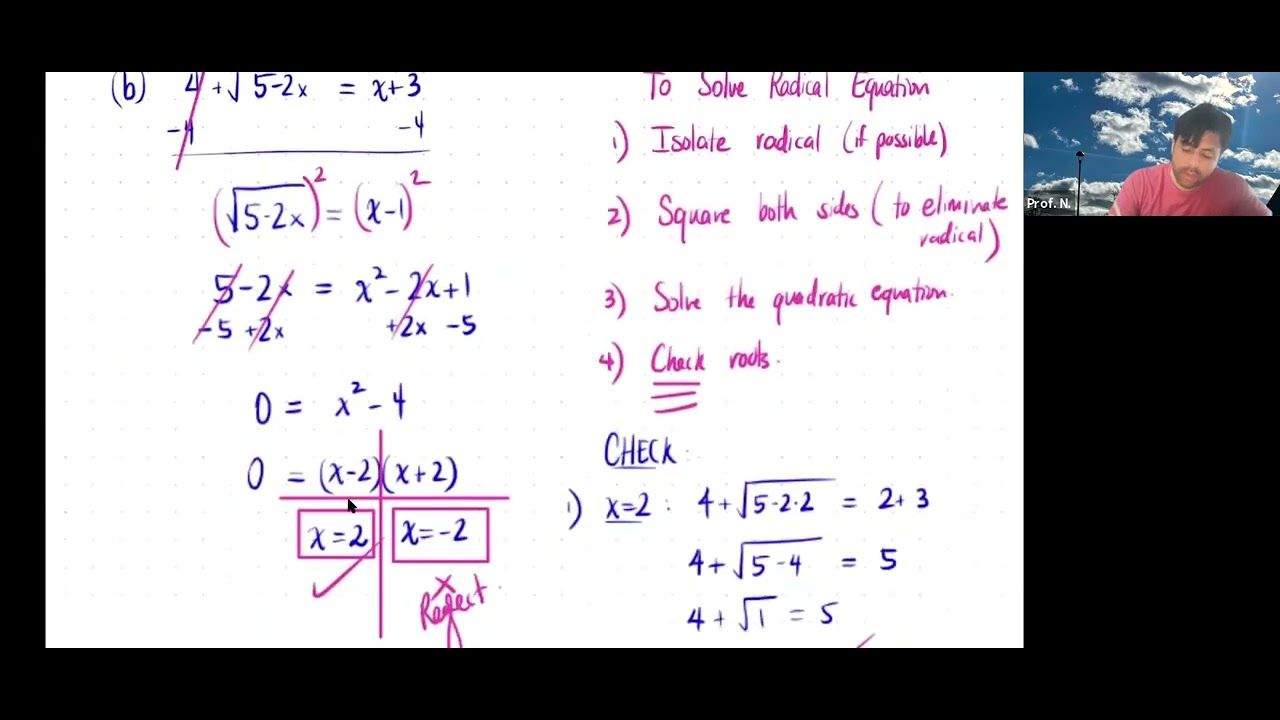 (b) 4 + √5-2x = x+3
-4 -4
(√5-2x)² = (x-1)²
5-2x = x²-2x+1
-5 +2x +2x -5
0 = x²-4
0 = (x-2)(x+2)
x=2 x=-2
Reject
To Solve Radical Equation
1) Isolate radical (if possible)
2) Square both sides (to eliminate
radical)
3) Solve the quadratic equation.
4) Check roots.
CHECK:
1) x=2: 4+√5-2·2 = 2+3
4+√5-4 = 5
4+√1 = 5
Prof. N.